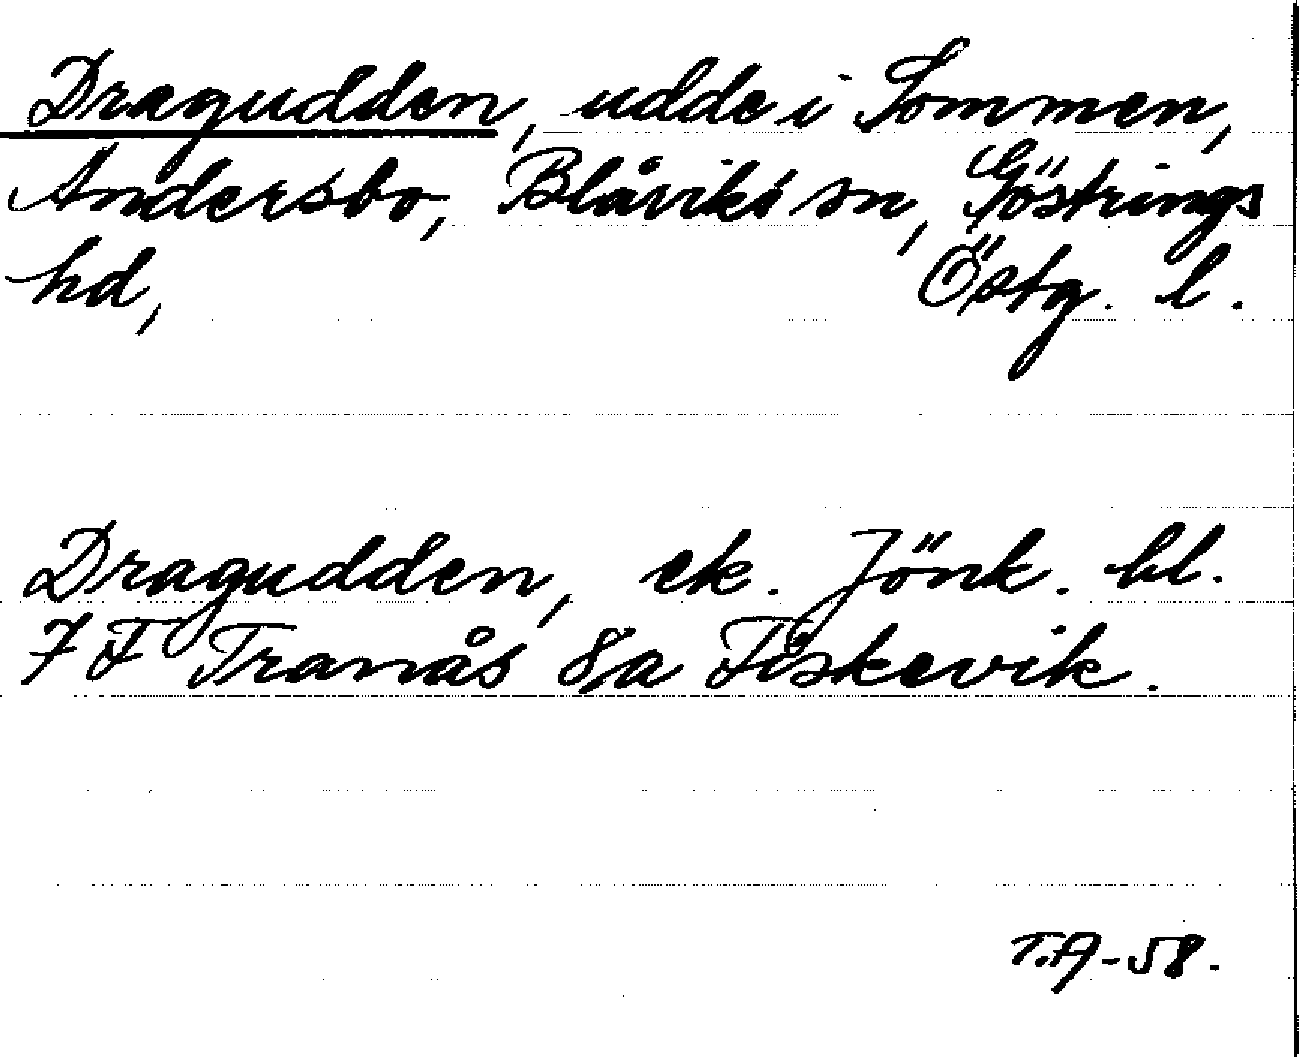 Dragudden, udde i Sommen,
Andersbo, Blåviks sn, Göstrings
hd, Östg. l.
Dragudden, ek. Jönk. bl.
7 F Tranås 8a Fiskevik.
T.A-58.